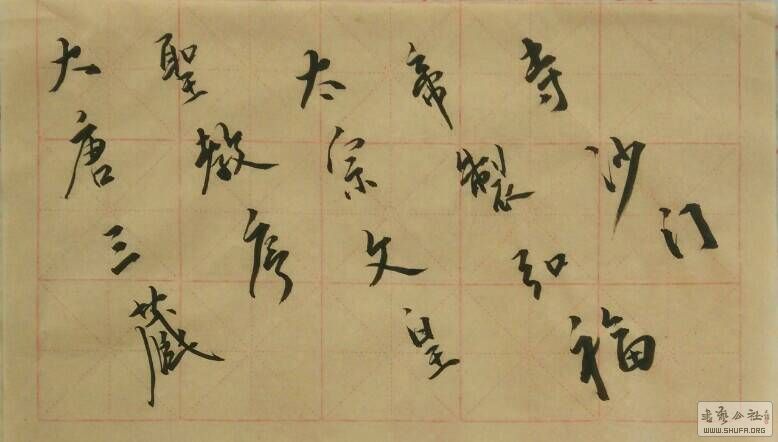 大唐三藏
聖教序
太宗文皇
帝製弘福
寺沙门
WWW.SHUFA.ORG